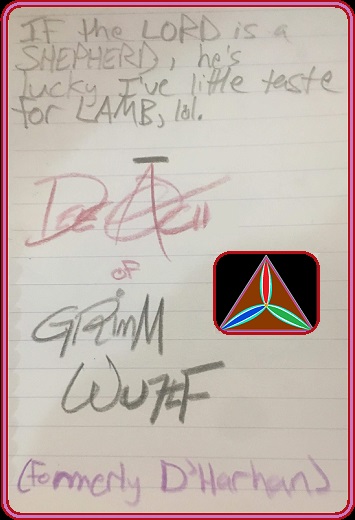 IF the LORD is a
SHEPHERD, he's
lucky I've little taste
for LAMB, lol.
of
GRimM
(formerly D'Harhan)